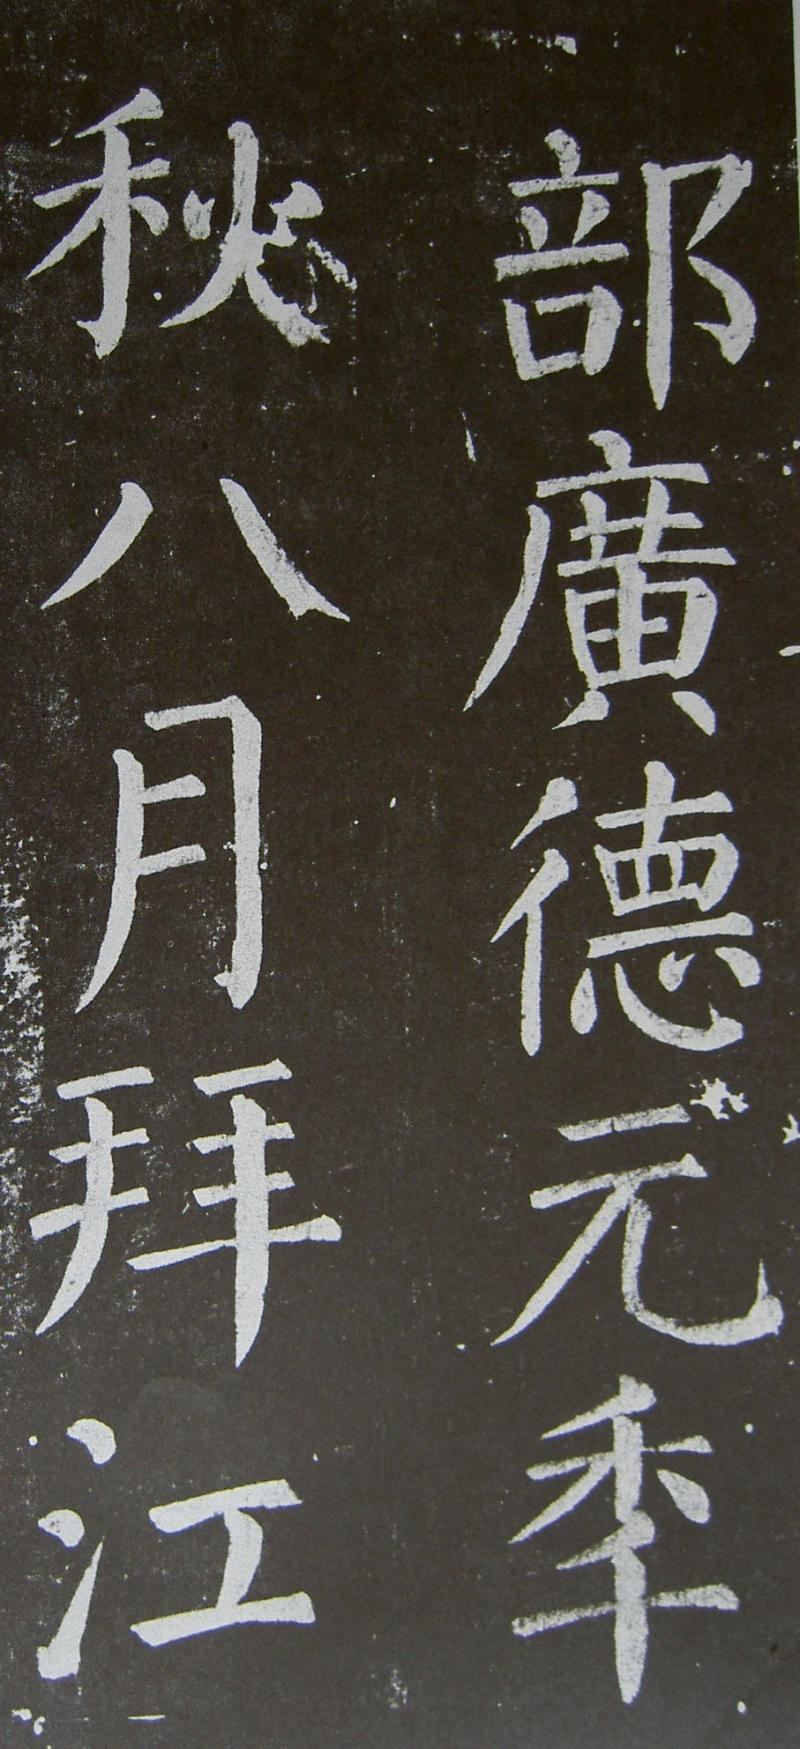 部廣德元秊
秋八月拜江